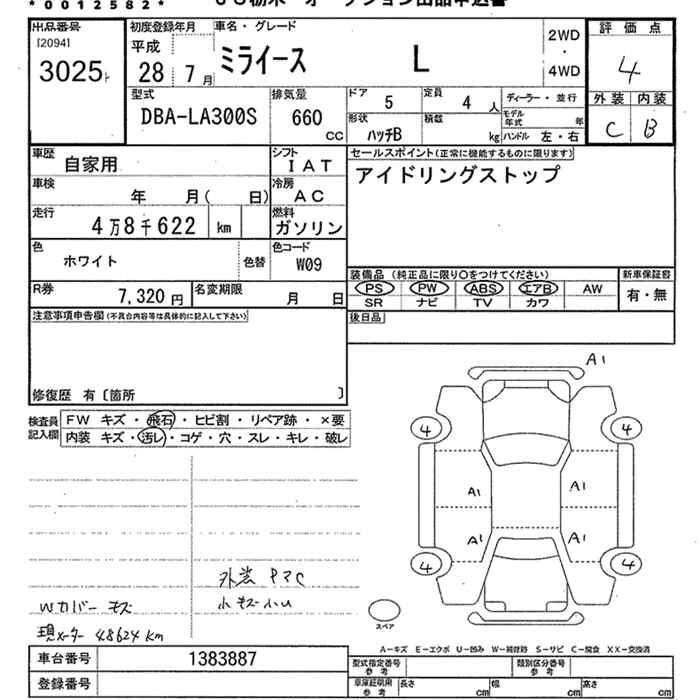 *0012582*
出品番号
[20941
3025ト
初度登録年月
平成
28 年 7 月
車名・グレード
ミライース L
2WD
・
4WD
評価点
4
外装 内装
C B
型式
DBA-LA300S
排気量
660
CC
ドア
5
定員
4 人
形状
ハッチB
積載
kg
ディーラー・並行
モデル年式 年
ハンドル 左・右
車歴
自家用
シフト
IAT
車検
年 月( 日)
冷房
AC
走行
4万8千622 km
燃料
ガソリン
色
ホワイト
色替
色コード
W09
R券
7,320 円
名変期限
月 日
セールスポイント(正常に機能するものに限ります)
アイドリングストップ
装備品 (純正品に限り○をつけてください)
PS PW ABS エアB AW
SR ナビ TV カワ
新車保証書
有・無
後日品
注意事項申告欄(不具合内容等は具体的に記入して下さい)
修復歴 有〔箇所 〕
検査員記入欄
FW キズ・飛石・ヒビ割・リペア跡・×要
内装 キズ・汚レ・コゲ・穴・スレ・キレ・破レ
外装 PマC
小キズ小U
Wカバーキズ
現メーター 48624 km
A1
4 4
A1 A1
A1 A1
4 4
スペア
A-キズ E-エクボ U-凹み W-補修跡 S-サビ C-腐食 XX-交換済
車台番号 1383887
登録番号
型式指定番号
参考
類別区分番号
参考
車庫証明用
参考
長さ cm 幅 cm 高さ cm